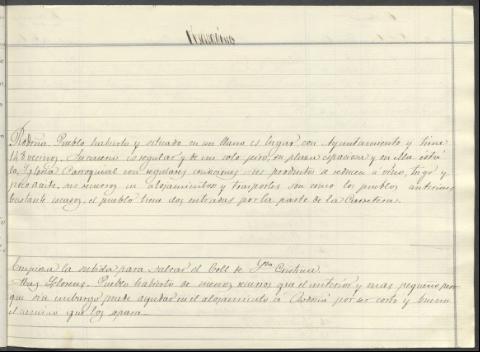 Rodoñá. Pueblo habierto y situado en un llano es lugar con Ayuntamiento y tiene
148 vecinos. Su caserio es regular y de un solo piso, su plaza espaciosa y en ella está
la Iglesia Parroquial con regulares condiciones. Sus productos se reducen a vino, trigo y
sus recursos en alojamientos y trasportes son como los pueblos anteriores
bastante escasos, el pueblo tiene dos entradas por la parte de la Carretera.
Empieza la subida para salvar el Coll de Sta Cristina
Pueblo habierto de menos vecinos que el anterior y mas pequeño por
que sin embargo puede ayudar en el alojamiento a Rodoñá por ser corto y bueno
el camino que los separa.